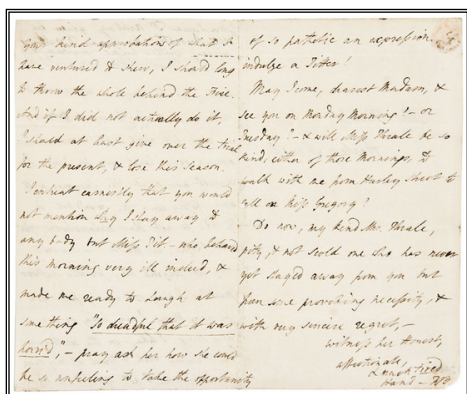 your kind approbation of what I
have ventured to shew, I should long
to throw the whole behind the Fire.
And if I did not actually do it,
I should at least give over the trial
for the present, & lose this Season.
I entreat earnestly that you would
not mention why I stay away to
any body but Miss Tit – who behaved
this morning very ill indeed, &
made me ready to laugh at
something "so dreadful that it was
horrid", – pray ask her how she could
be so unfeeling to take the opportunity
of so pathetic an expression
indulge a Titter!
May I come, dearest Madam, &
see you on Monday Morning? – or
Tuesday? – & will Miss Thrale be so
kind, either of those Mornings, to
walk with me from Harley Street to
call on Miss Gregory?
Do now, my kind Mrs. Thrale,
pity, & not scold one who has never
yet stayed away from you but
from some providing necessity, &
with very sincere regret, –
witness her honest,
affectionate,
& much tired
Hand – FB